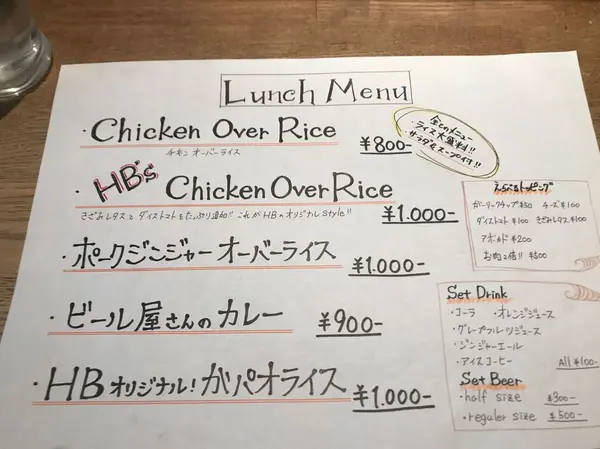 Lunch Menu
・Chicken Over Rice ¥800-
チキン オーバーライス
全てのメニュー
・ライス大盛無料!!
・サラダ&スープ付!!
・HB's Chicken Over Rice ¥1.000-
きざみレタスとダイストマトをたっぷり追加!! これがHBのオリジナルstyle!!
・ポークジンジャーオーバーライス ¥1.000-
・ビール屋さんのカレー ¥900-
・HBオリジナル!ガパオライス ¥1.000-
えらべるトッピング
ガーリックチップ ¥50 チーズ ¥100
ダイストマト ¥100 きざみレタス ¥100
アボカド ¥200
お肉2倍!! ¥500
Set Drink
・コーラ ・オレンジジュース
・グレープフルーツジュース
・ジンジャーエール
・アイスコーヒー All ¥100-
Set Beer
・half size ¥300-
・reguler size ¥500-